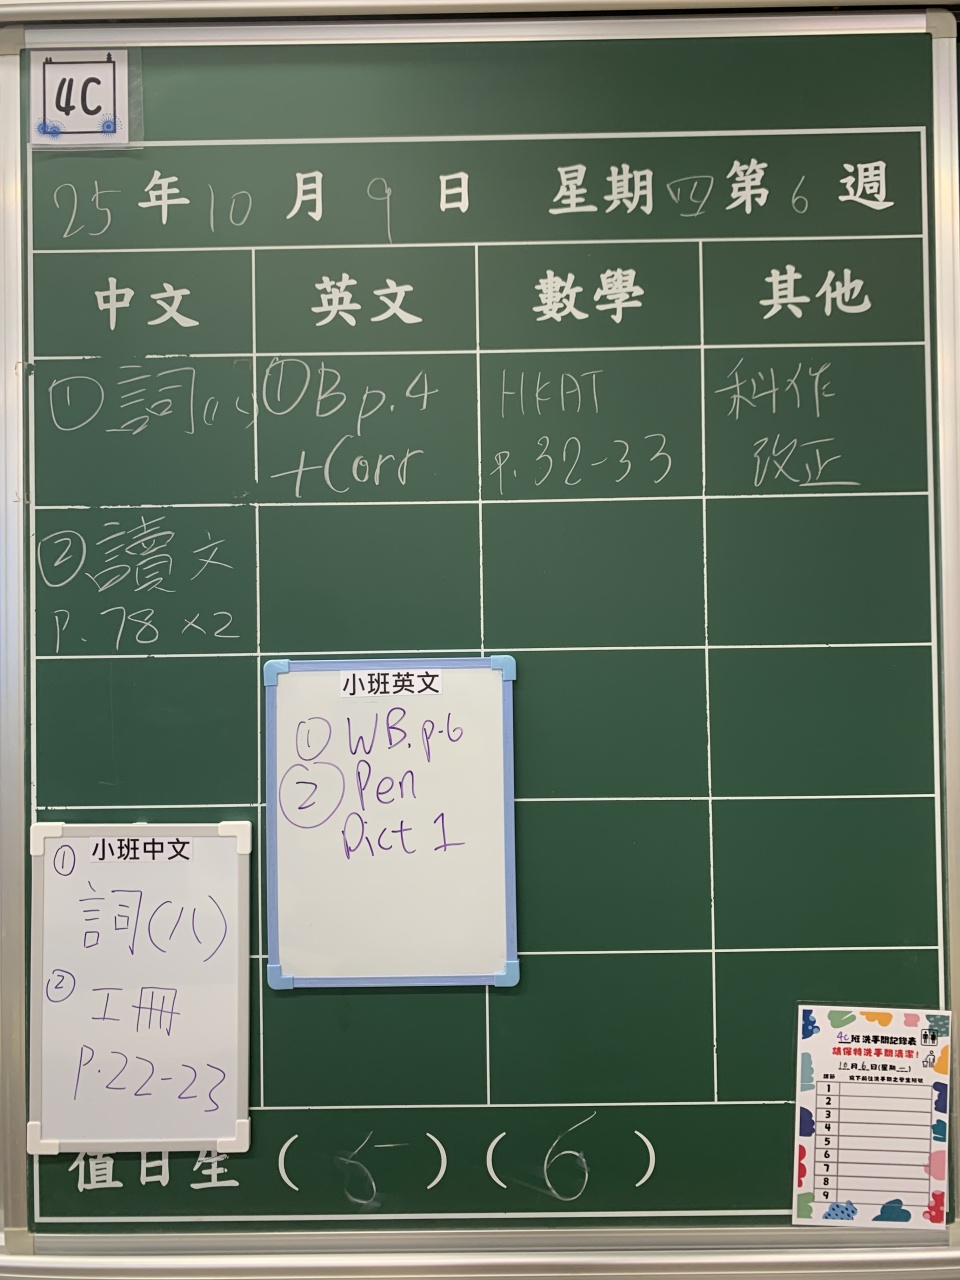 4C
25年10月9日 星期四第6週
中文 英文 數學 其他
①詞(八) ①B p.4 HKAT 科作
+Corr p.32-33 改正
②讀文
p.78 ×2
小班英文
① WB. p.6
② Pen
Dict 1
小班中文
①
詞(八)
②
工冊
p.22-23
值日生(5)(6)
4C班洗手間記錄表
請保持洗手間清潔!
10月6日(星期一)
1
2
3
4
5
6
7
8
9